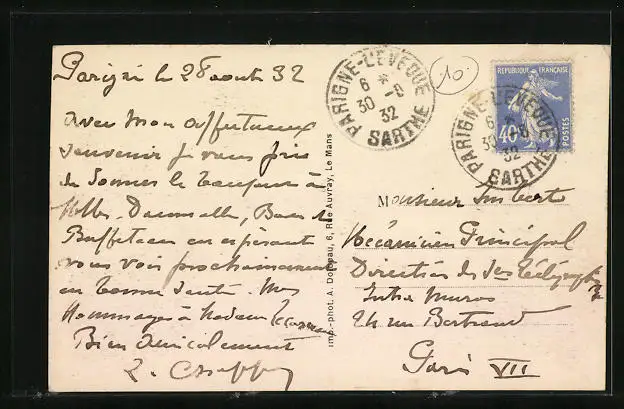 Parigné le 28 aout 32
Avec mon affectueux
souvenir je vous prie
de donner le bonjour à
Melles
vous voir prochainement
en bonne santé. Mes
Hommages à Madame
Bien Amicalement
PARIGNE-L'EVEQUE
6 *
30 -8
32
SARTHE
10
REPUBLIQUE FRANÇAISE
40c
POSTES
PARIGNE-L'EVEQUE
6 *
30 -8
32
SARTHE
Monsieur Imbert
Mécanicien Principal
Direction des Télégraphes
Intra Muros
24 rue Bertrand
Paris VII
Imp.-phot. A. Dolbeau, 6, Rue Auvray, Le Mans